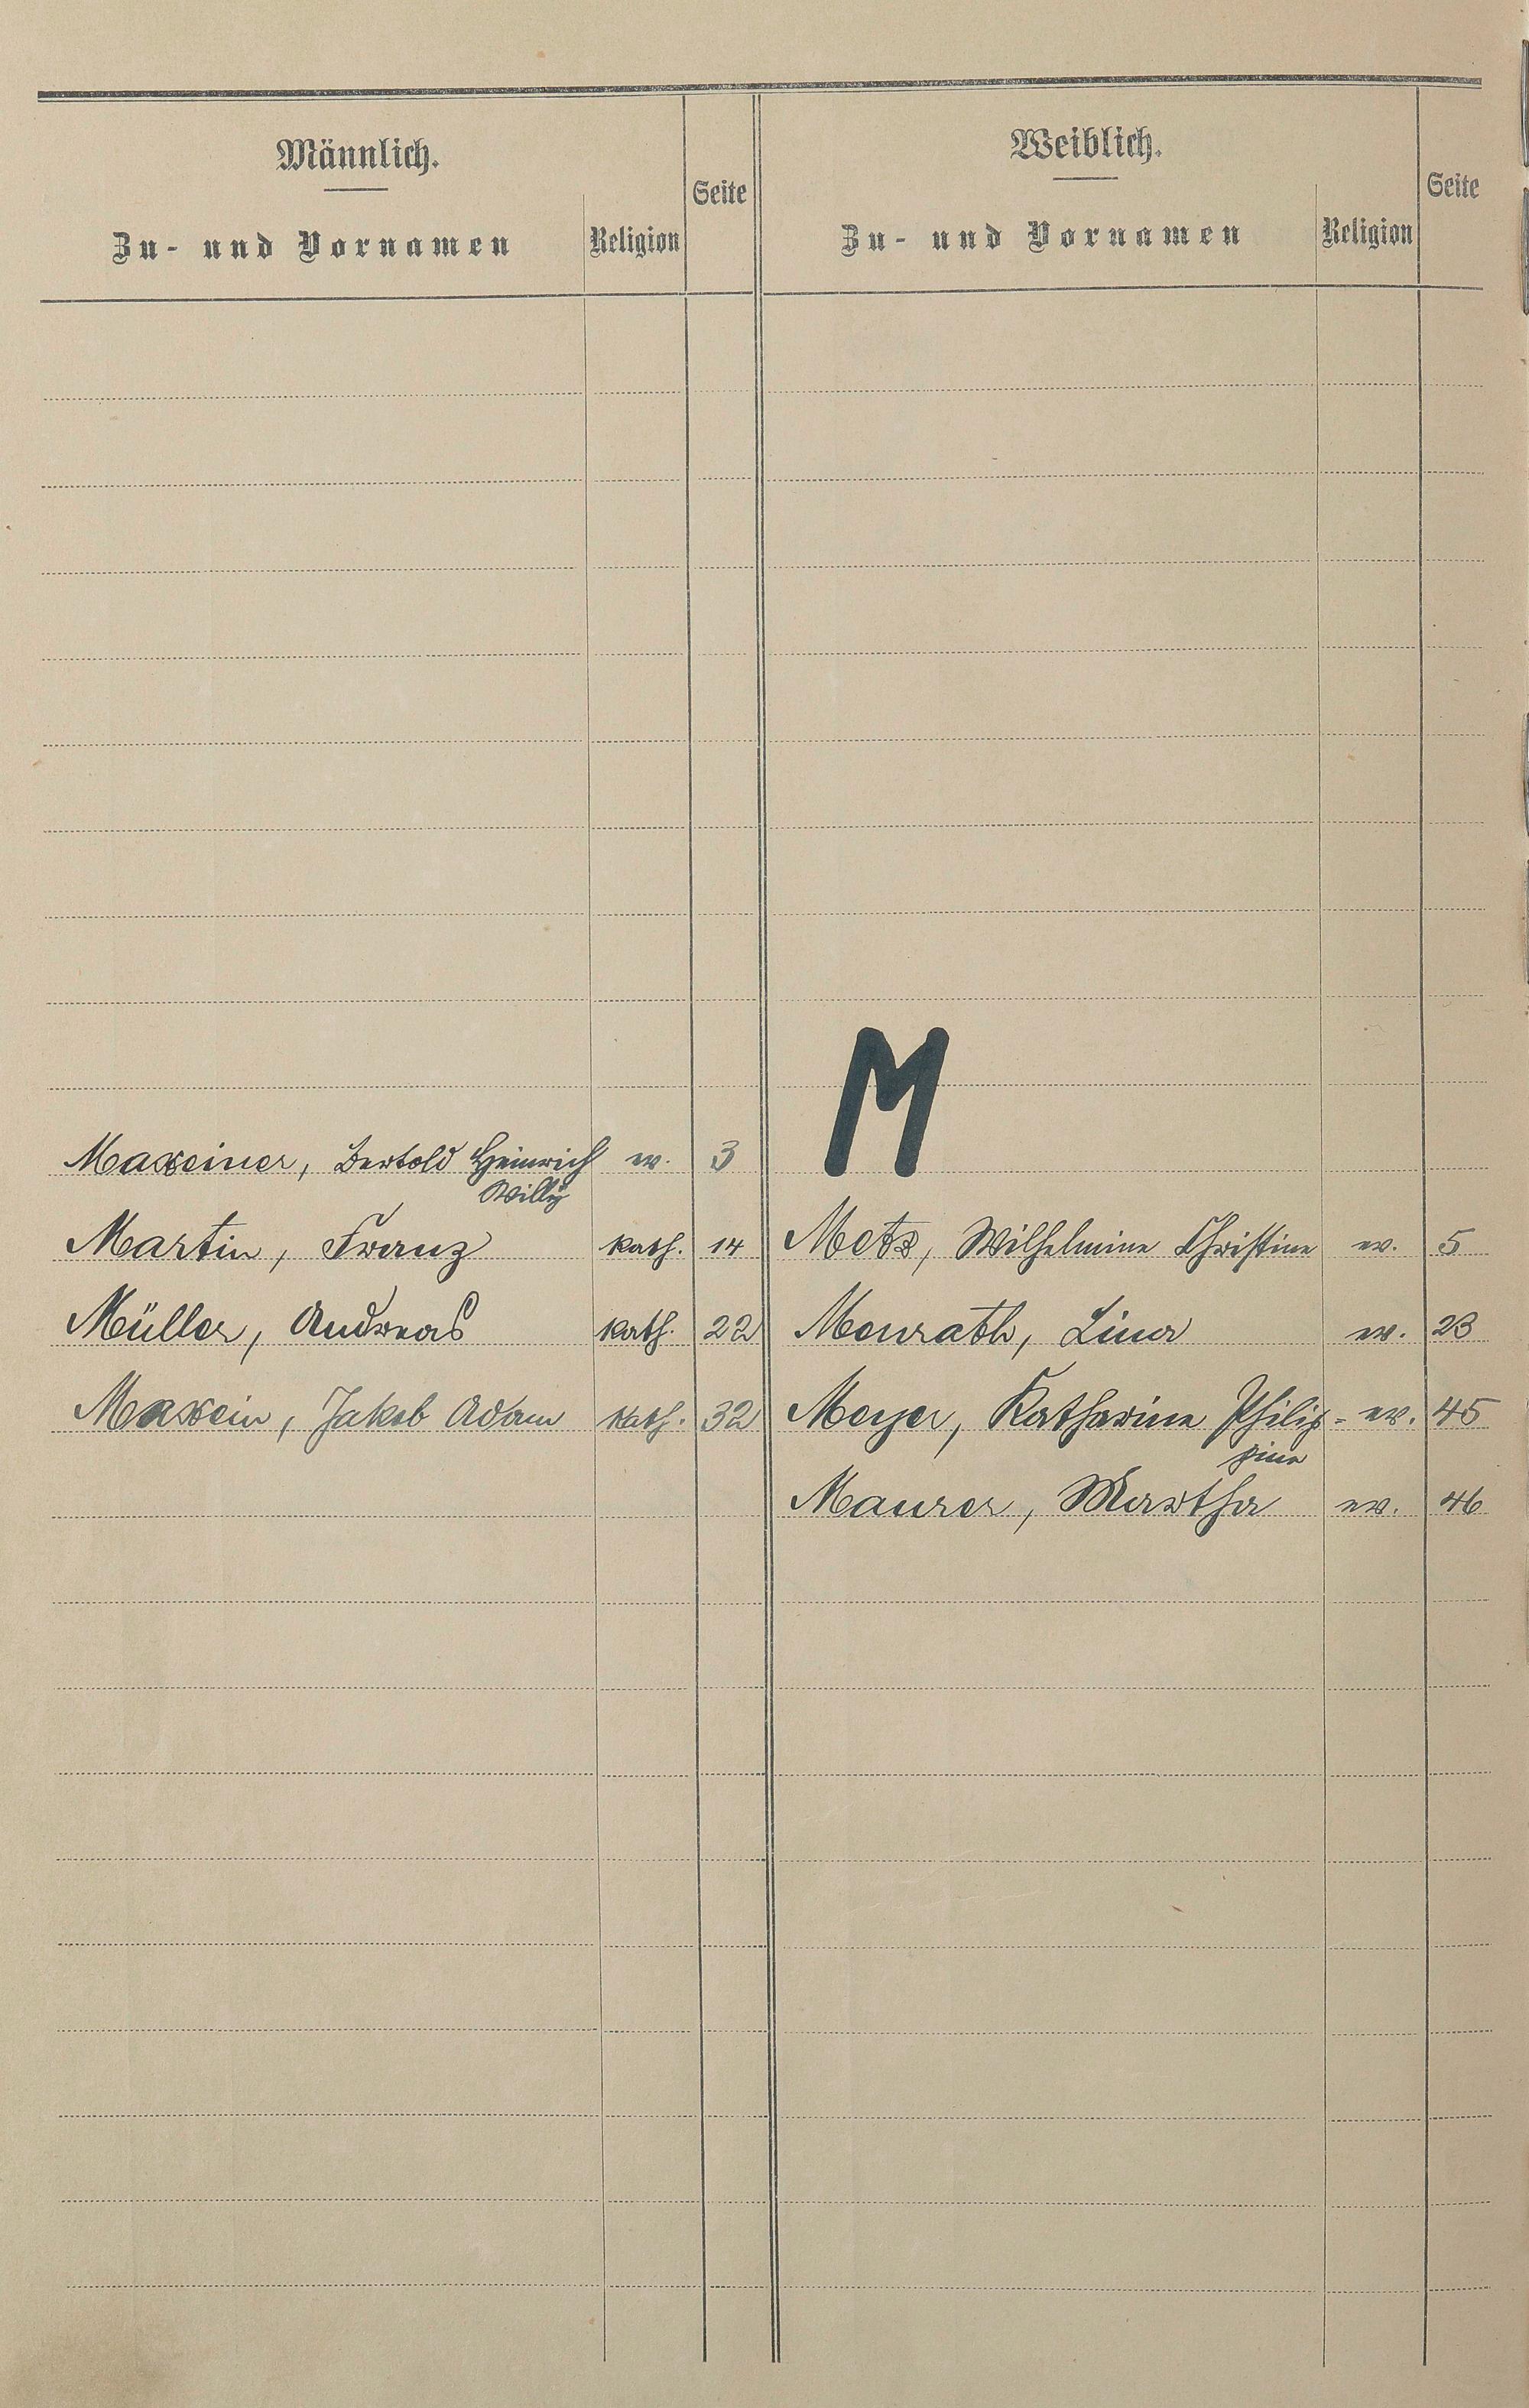 Männlich.
Zu- und Vornamen
Religion
Seite
Weiblich.
Zu- und Vornamen
Religion
Seite
M
Maxeiner, Bertold Heinrich ev. 3
Willy
Martin, Franz kath. 14
Müller, Andreas kath. 22
Maxein, Jakob Adam kath. 32
Metz, Wilhelmine Christine ev. 5
Menrath, Lina ev. 23
Meyer, Katharine Philip- ev. 45
pine
Maurer, Martha ev. 46